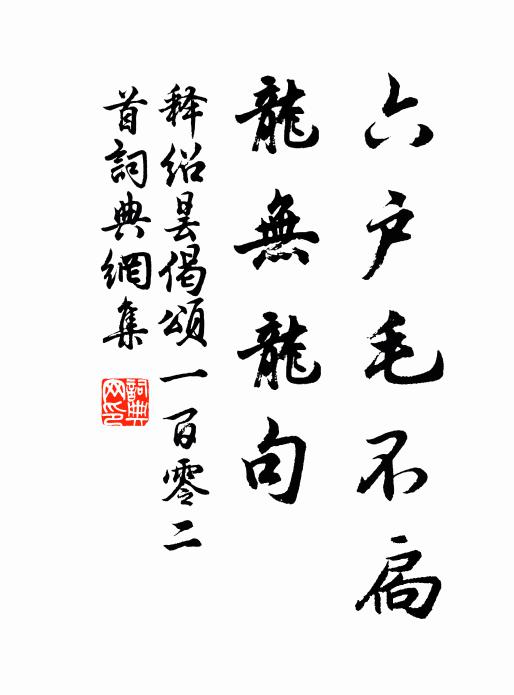 六户毛不扃
龍無龍句
释绍昙偈頌一百零二
首詞典網集
詞典網印